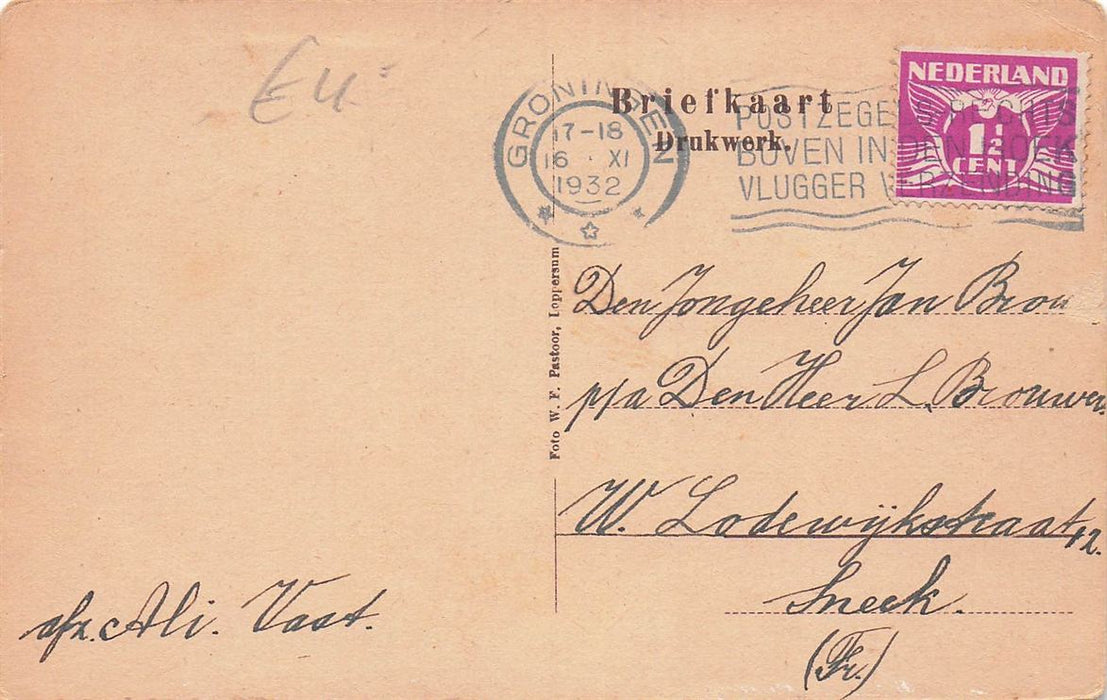 €4.-
Briefkaart
Drukwerk.
GRONINGEN
17-18
16 · XI
1932
POSTZEGELS RECHTS
BOVEN IN DEN HOEK
VLUGGER VERZENDING
NEDERLAND
1½
CENT
Foto W. F. Pastoor, Loppersum
Den Jongeheer Jan Brou
p/a Den Heer L. Brouwer.
W. Lodewijkstraat 12.
Sneek.
(Fr.)
afz. Ali. Vast.